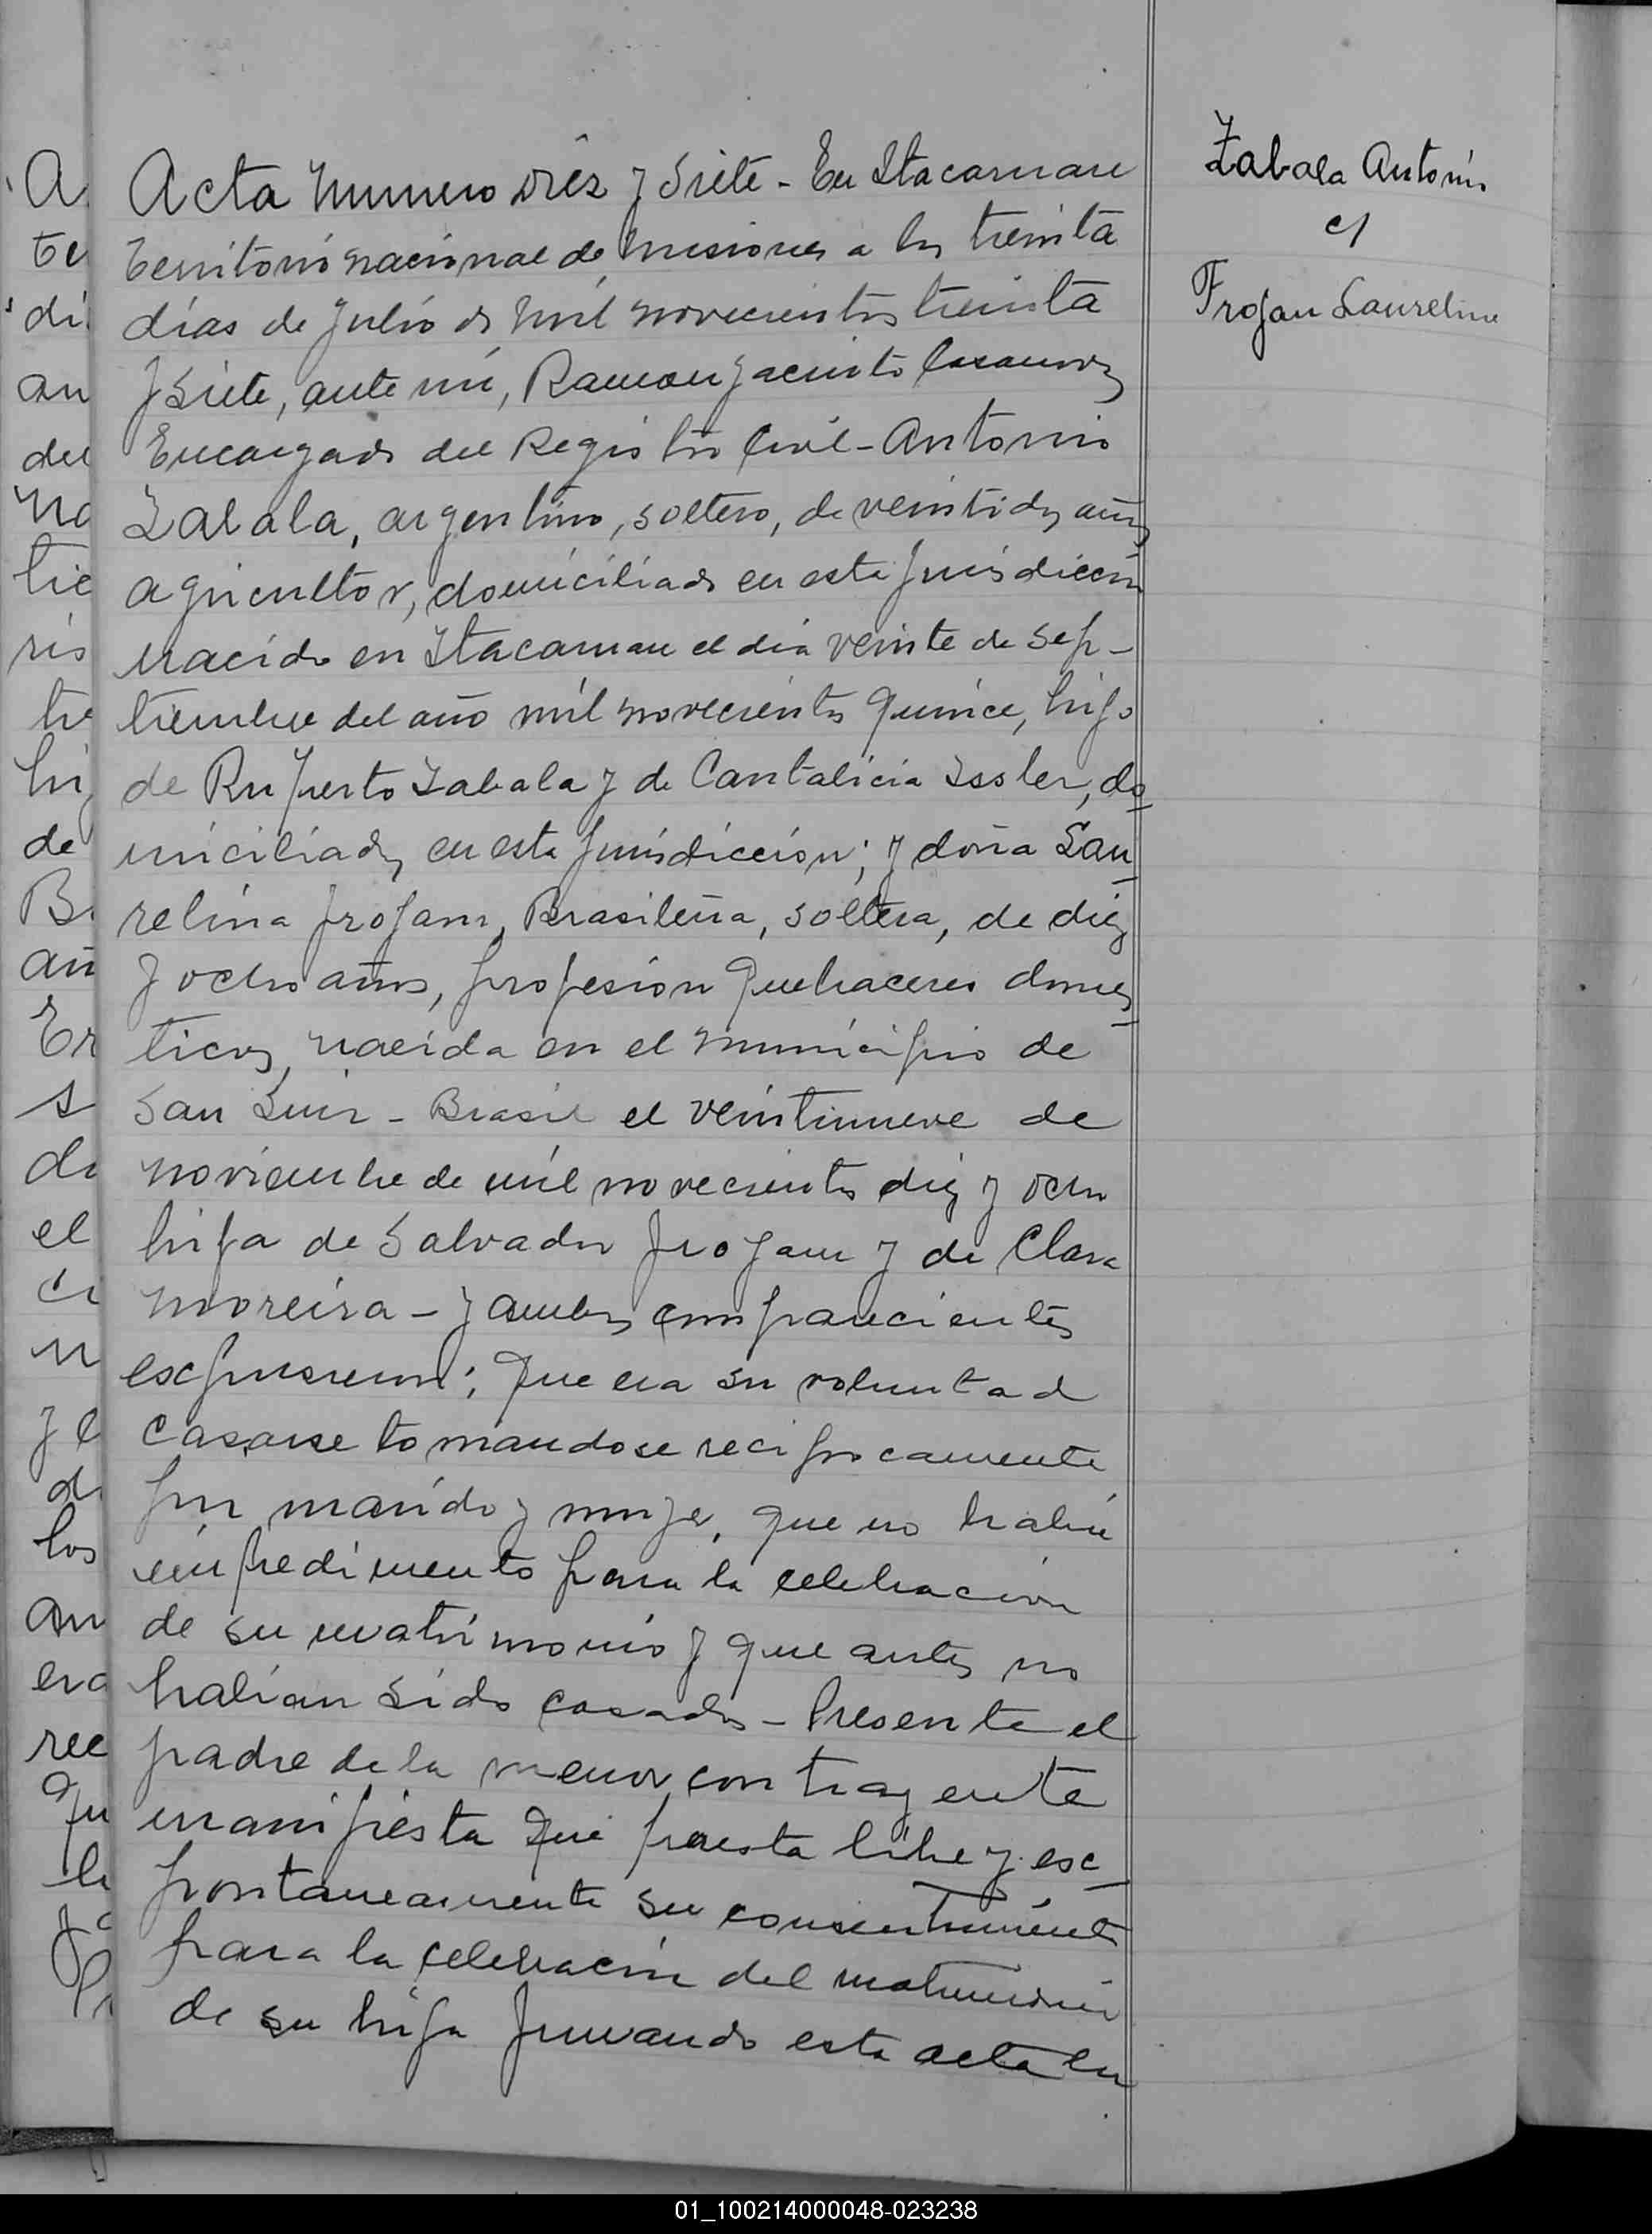 Acta Numero Diez y Siete - En Itacaruare
territorio nacional de Misiones a los treinta
días de Julio de mil novecientos treinta
y Siete, ante mí, Ramon Jacinto
Encargado del Registro Civil - Antonio
Zabala, argentino, soltero, de veintidos años
agricultor, domiciliado en esta jurisdiccion
nacido en Itacaruare el día veinte de Sep-
tiembre del año mil novecientos quince, hijo
de Ruperto Zabala y de Cantalicia Issler, do
miciliados en esta jurisdiccion; y doña Lau
relina Frojam, Brasileña, soltera, de diez
y ocho años, profesion quehaceres domes
ticos, nacida en el municipio de
San Luis - Brasil el veintinueve de
noviembre de mil novecientos diez y ocho
hija de Salvador Frojam y de Clara
Moreira - y ambos comparecientes
expusieron: que era su voluntad
casarse tomandose reciprocamente
por marido y mujer, que no habia
impedimento para la celebracion
de su matrimonio y que antes no
habian sido casados - Presente el
padre de la menor contrayente
manifiesta que presta libre y esc
pontaneamente su consentimiento
para la celebracion del matrimonio
de su hija firmando esta acta en
Zabala Antonio
c/
Frojan Laurelina
A
te
di
an
del
na
tie
ris
hi
de
B
añ
Er
s
de
el
ci
n
y e
d
los
an
era
rec
qu
la
01_100214000048-023238